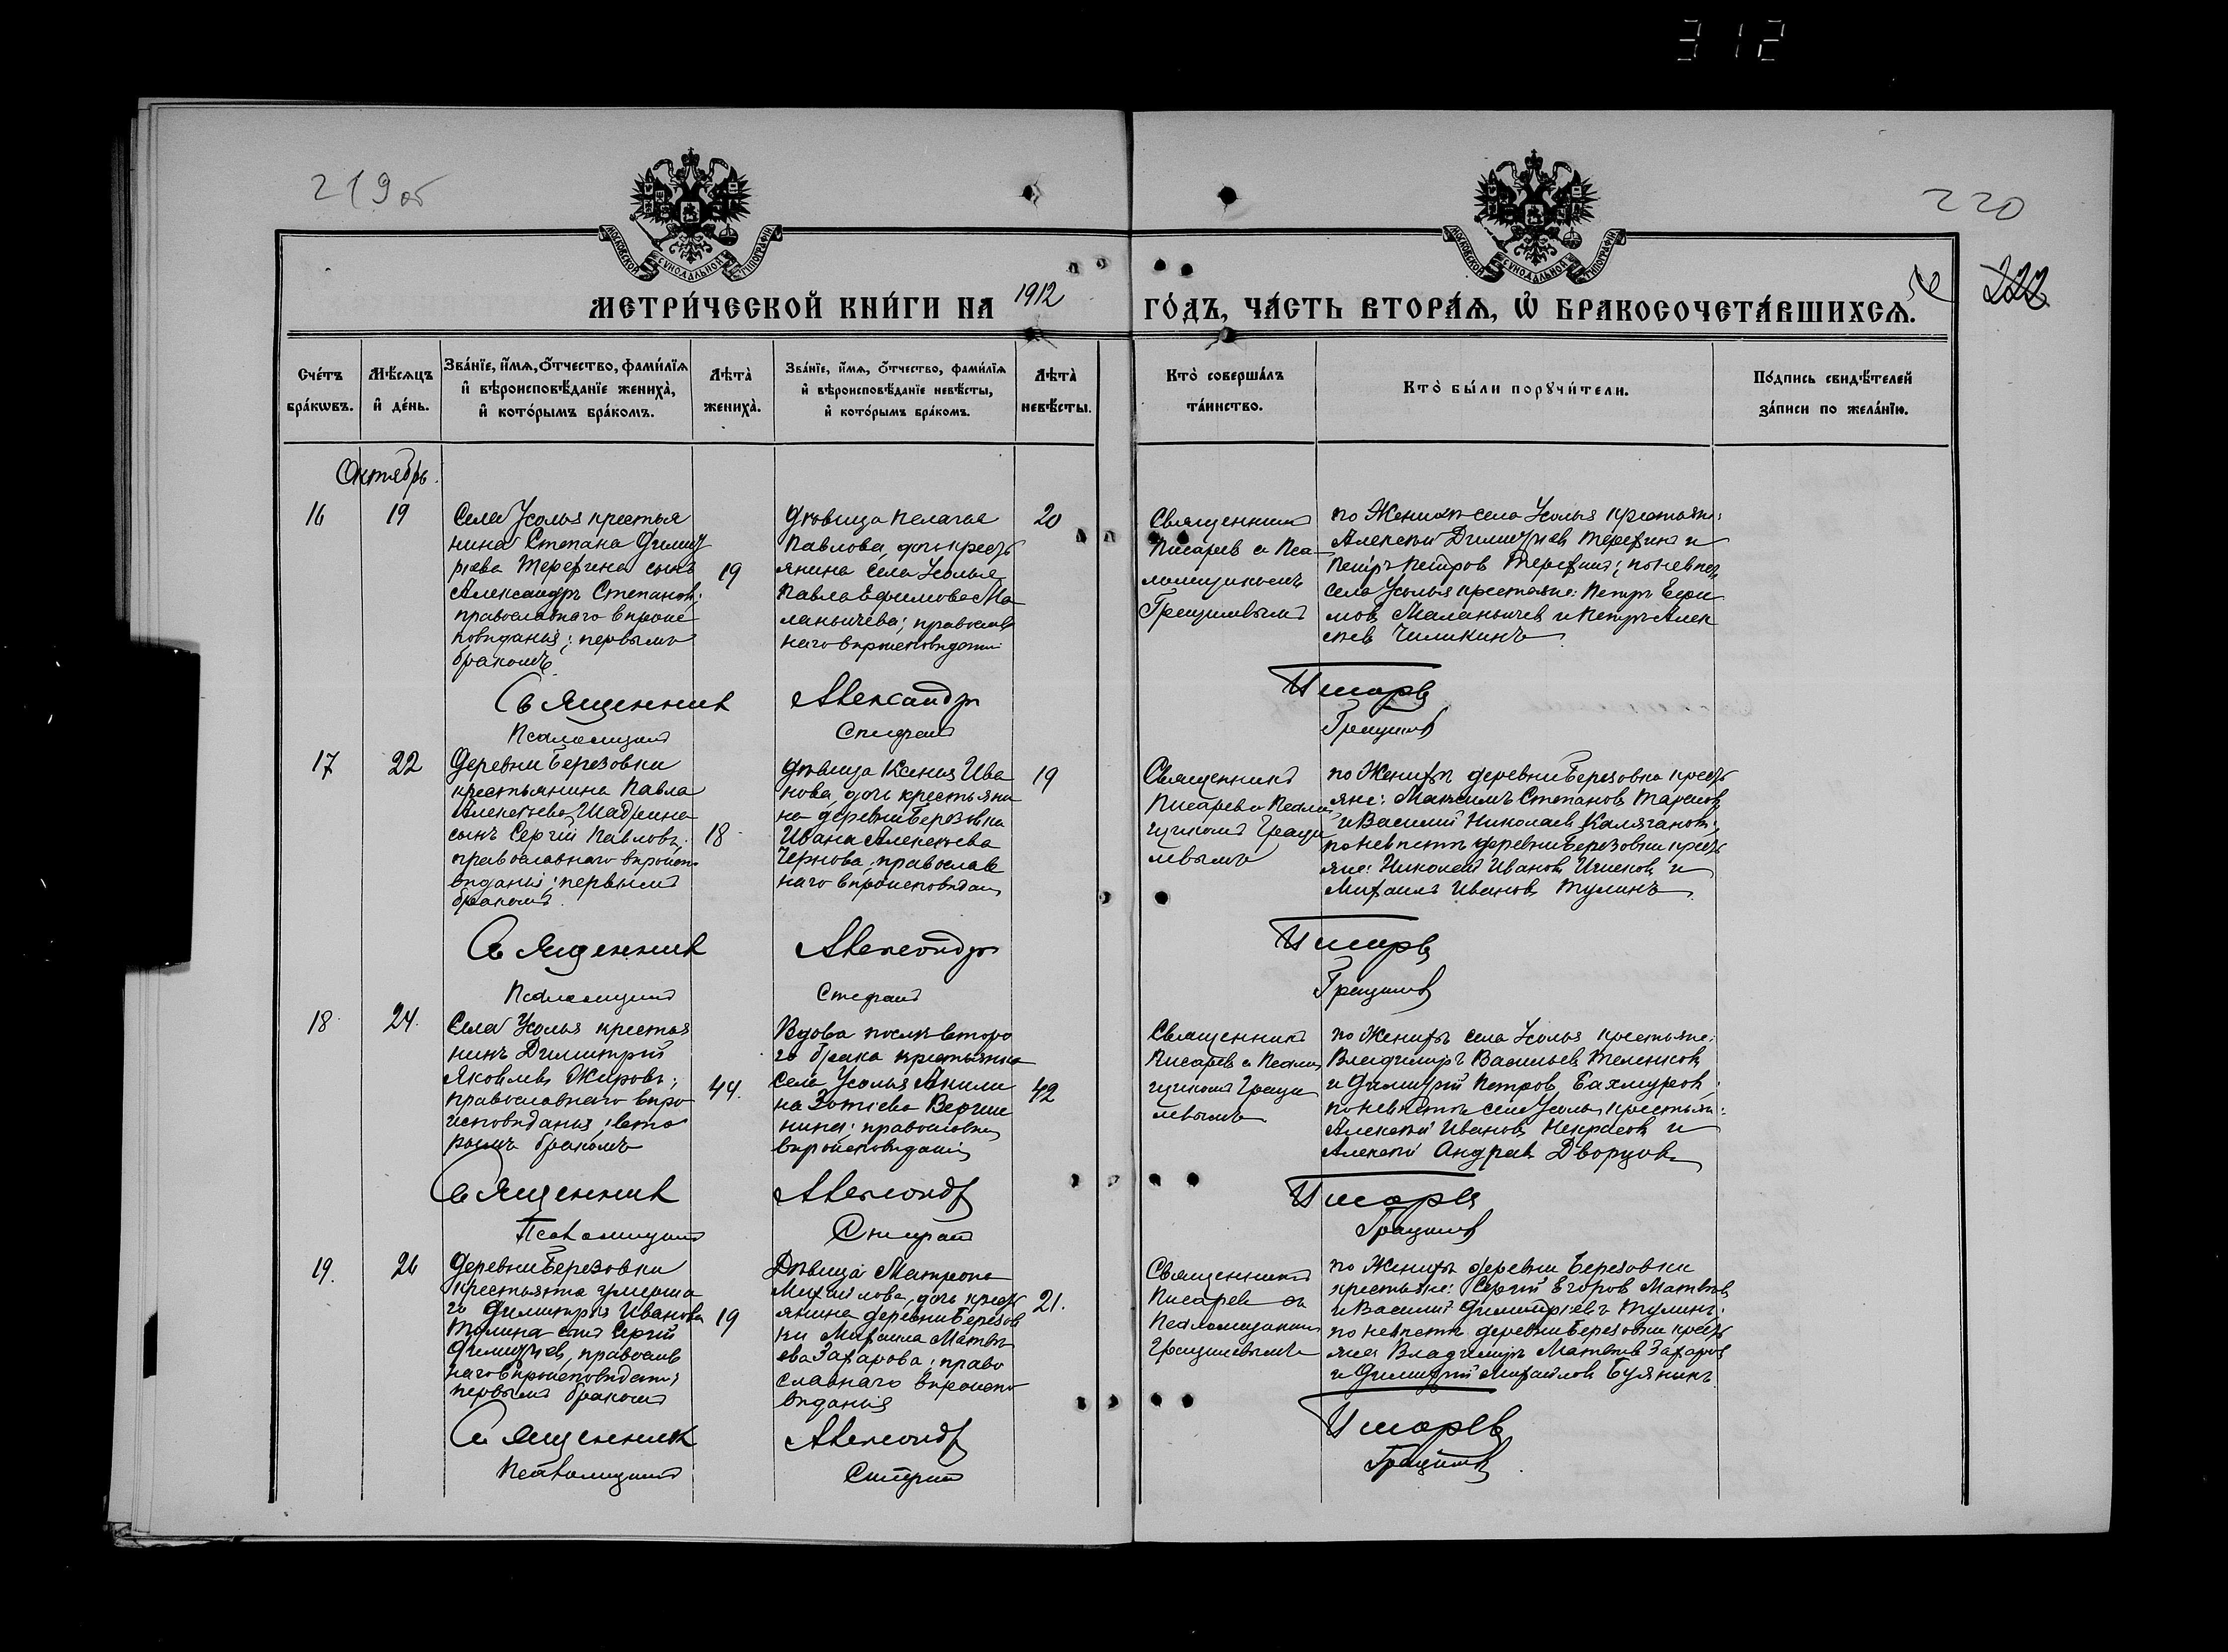 312
219 об
220
МОСКОВСКОЙ СѴНОДАЛЬНОЙ ТИПОГРАФІИ
МОСКОВСКОЙ СѴНОДАЛЬНОЙ ТИПОГРАФІИ
МЕТРИ́ЧЕСКОЙ КНИ́ГИ НА 1912 ГО́ДЪ, ЧА́СТЬ ВТОРА́Ѧ, Ѡ БРАКОСОЧЕТА́ВШИХСѦ.
222
Сче́тъ бра́кѡвъ.
Мѣ́сѧцъ и҆ де́нь.
Зва́нїе, и҆́мѧ, о҆́тчество, фами́лїѧ
и҆ вѣроисповѣ́данїе жениха̀,
и҆ кото́рымъ бра́комъ.
Лѣта̀ жениха̀.
Зва́нїе, и҆́мѧ, о҆́тчество, фами́лїѧ
и҆ вѣроисповѣ́данїе невѣ́сты,
и҆ кото́рымъ бра́комъ.
Лѣта̀ невѣ́сты.
Кто̀ соверша́лъ
та́инство.
Кто̀ бы́ли порꙋчи́тели.
По́дпись свидѣ́телей
за́писи по жела́нїю.
Октябрь.
16
19
Села Усолья крестья
нина Степана Димит
ріева Терехина сынъ
Александръ Степановъ;
православнаго вѣроис
повѣданія; первымъ
бракомъ.
19
Дѣвица Пелагія
Павлова, дочь кресть
янина села Усолья
Павла Ефимова Ма
ланьичева; православ
наго вѣроисповѣданія
20
Священникъ
Писаревъ съ Пса
ломщикомъ
Грациловымъ
по Женихѣ села Усолья крестьяне:
Алексѣй Димитріевъ Терехинъ и
Петръ Петровъ Терехинъ; по невѣстѣ
села Усолья крестьяне: Петръ Ефи
мовъ Маланьичевъ и Петръ Алек
сѣевъ Чиликинъ
Священникъ Александръ Писаревъ
Псаломщикъ Стефанъ Грациловъ
17
22
Деревни Березовки
крестьянина Павла
Алексѣева Шадрина
сынъ Сергій Павловъ;
православнаго вѣроиспо
вѣданія; первымъ
бракомъ.
18
Дѣвица Ксенія Ива
нова, дочь крестьяни
на деревни Березовки
Ивана Алексѣева
Чернова, православ
наго вѣроисповѣданія
19
Священникъ
Писаревъ съ Псалом
щикомъ Граци
ловымъ
по Женихѣ деревни Березовки кресть
яне: Максимъ Степановъ Тарасовъ
и Василій Николаевъ Калягановъ;
по невѣстѣ деревни Березовки кресть
яне: Николай Ивановъ и
Михаилъ Ивановъ Тулинъ
Священникъ Александръ Писаревъ
Псаломщикъ Стефанъ Грациловъ
18
24.
Села Усолья крестья
нинъ Димитрій
Яковлевъ Жировъ;
православнаго вѣро
исповѣданія; вто
рымъ бракомъ
44.
Вдова послѣ второ
го брака крестьянка
села Усолья Акили
на Зотіева
православнаго
вѣроисповѣданія
42
Священникъ
Писаревъ съ Псалом
щикомъ Граци
ловымъ
по Женихѣ села Усолья крестьяне:
Владимиръ Васильевъ Теленковъ
и Димитрій Петровъ Бахмуровъ;
по невѣстѣ села Усолья крестьяне:
Алексѣй Ивановъ Некрасовъ и
Алексѣй Андреевъ Дворцовъ
Священникъ Александръ Писаревъ
Псаломщикъ Стефанъ Грациловъ
19.
26
Деревни Березовки
крестьянина умерша
го Димитрія Иванова
Тулина сынъ Сергій
Димитріевъ, православ
наго вѣроисповѣданія
первымъ бракомъ
19
Дѣвица Матрона
Михаилова, дочь кресть
янина деревни Березов
ки Михаила Матвѣ
ева Захарова; право
славнаго вѣроиспо
вѣданія
21.
Священникъ
Писаревъ съ
Псаломщикомъ
Грациловымъ
по Женихѣ деревни Березовки
крестьяне: Сергій Егоровъ Матвѣевъ
и Василій Димитріевъ Тулинъ;
по невѣстѣ деревни Березовки кресть
яне Владимиръ Матвѣевъ Захаровъ
и Димитрій Михайловъ Бузянинъ
Священникъ Александръ Писаревъ
Псаломщикъ Стефанъ Грациловъ